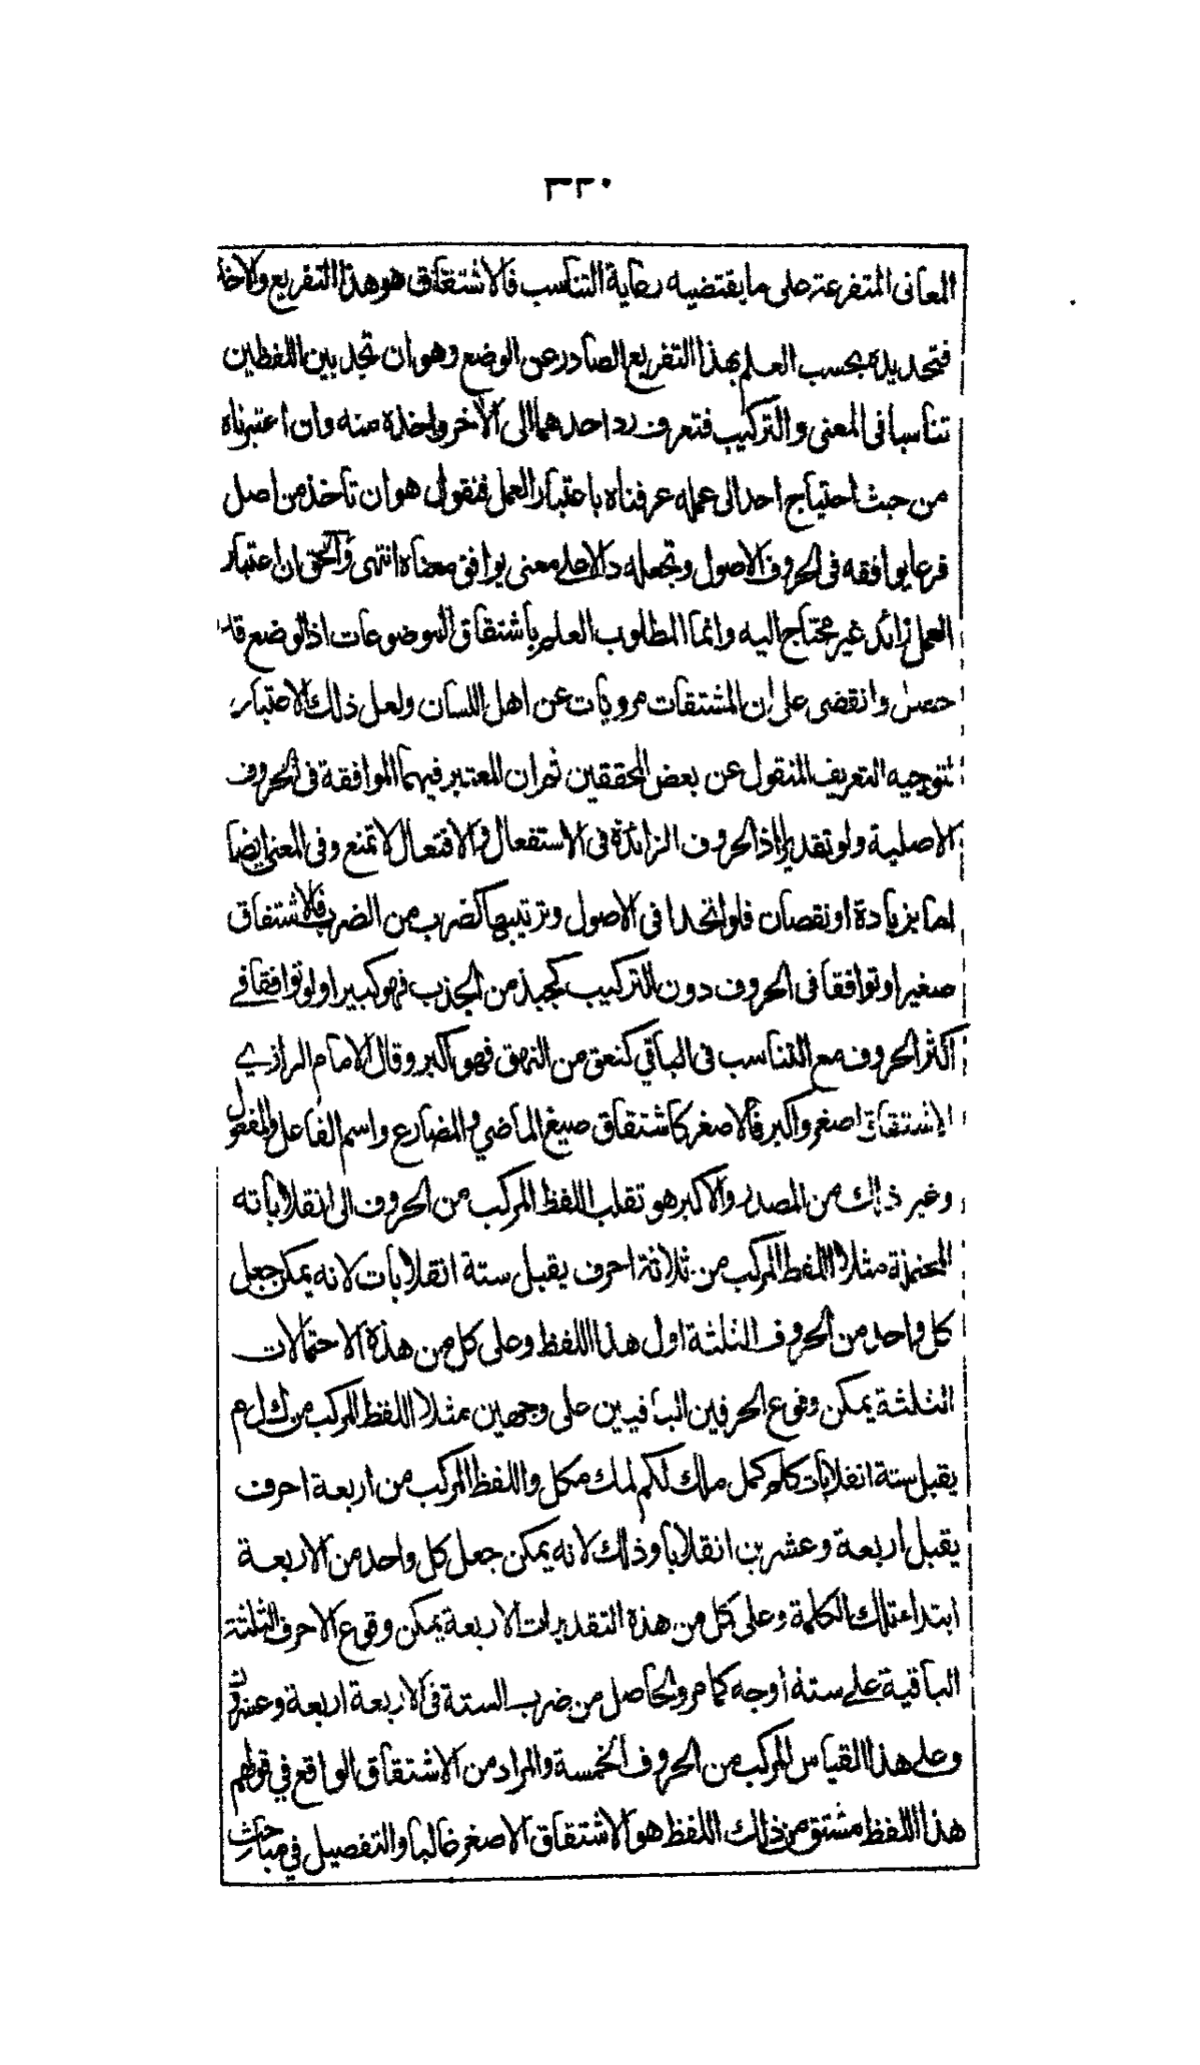 ٣٢٠
المعانى المتفرعة على ما يقتضيه رعاية التناسب فالاشتقاق هو هذا التفريع والاخذ
فتحديده بحسب العلم بهذا التفريع الصادر عن الوضع وهو ان تجد بين اللفظين
تناسبا فى المعنى والتركيب فتعرف رد احدهما الى الآخر واخذه منه وان اعتبرناه
من حيث احتياج احد الى عمله عرفناه باعتبار العمل فنقول هو ان تأخذ من اصل
فرعا يوافقه فى الحروف الاصول وتجعله دالا على معنى يوافق معناه انتهى والحق ان اعتبار
العمل زائد غير محتاج اليه وانما المطلوب العلم باشتقاق الموضوعات اذ الوضع قد
حصل وانقضى على ان المشتقات مرويات عن اهل اللسان ولعل ذلك الاعتبار
لتوجيه التعريف المنقول عن بعض المحققين ثم ان المعتبر فيهما الموافقة فى الحروف
الاصلية ولو تقديرا اذ الحروف الزائدة فى الاستفعال والافتعال لا تمنع وفى المعنى ايضا
اما بزيادة او نقصان فلو اتحدا فى الاصول وترتيبها كضرب من الضرب فالاشتقاق
صغير او توافقا فى الحروف دون التركيب كجبذ من الجذب فهو كبير او لو توافقا فے
اكثر الحروف مع التناسب فى الباقي كنعق من النهق فهو اكبر وقال الامام الرازي
الاشتقاق اصغر واكبر فالاصغر كاشتقاق صيغ الماضي والمضارع واسم الفاعل والمفعول
وغير ذلك من المصدر والاكبر هو تقلب اللفظ المركب من الحروف الى انقلاباته
المحتملة مثلا اللفظ المركب من ثلاثة احرف يقبل ستة انقلابات لانه يمكن جعل
كل واحد من الحروف الثلثة اول هذا اللفظ وعلى كل من هذه الاحتمالات
الثلثة يمكن وقوع الحرفين الباقيين على وجهين مثلا اللفظ المركب من ك ل م
يقبل ستة انقلابات كلم كمل ملك لكم لمك مكل واللفظ المركب من اربعة احرف
يقبل اربعة وعشرين انقلابا وذلك لانه يمكن جعل كل واحد من الاربعة
ابتداء تلك الكلمة وعلى كل من هذه التقديرات الاربعة يمكن وقوع الاحرف الثلثة
الباقية على ستة أوجه كما مر والحاصل من ضرب الستة فى الاربعة اربعة وعشرون
وعلى هذا القياس المركب من الحروف الخمسة والمراد من الاشتقاق الواقع في قولهم
هذا اللفظ مشتق من ذلك اللفظ هو الاشتقاق الاصغر غالبا والتفصيل في مباحث